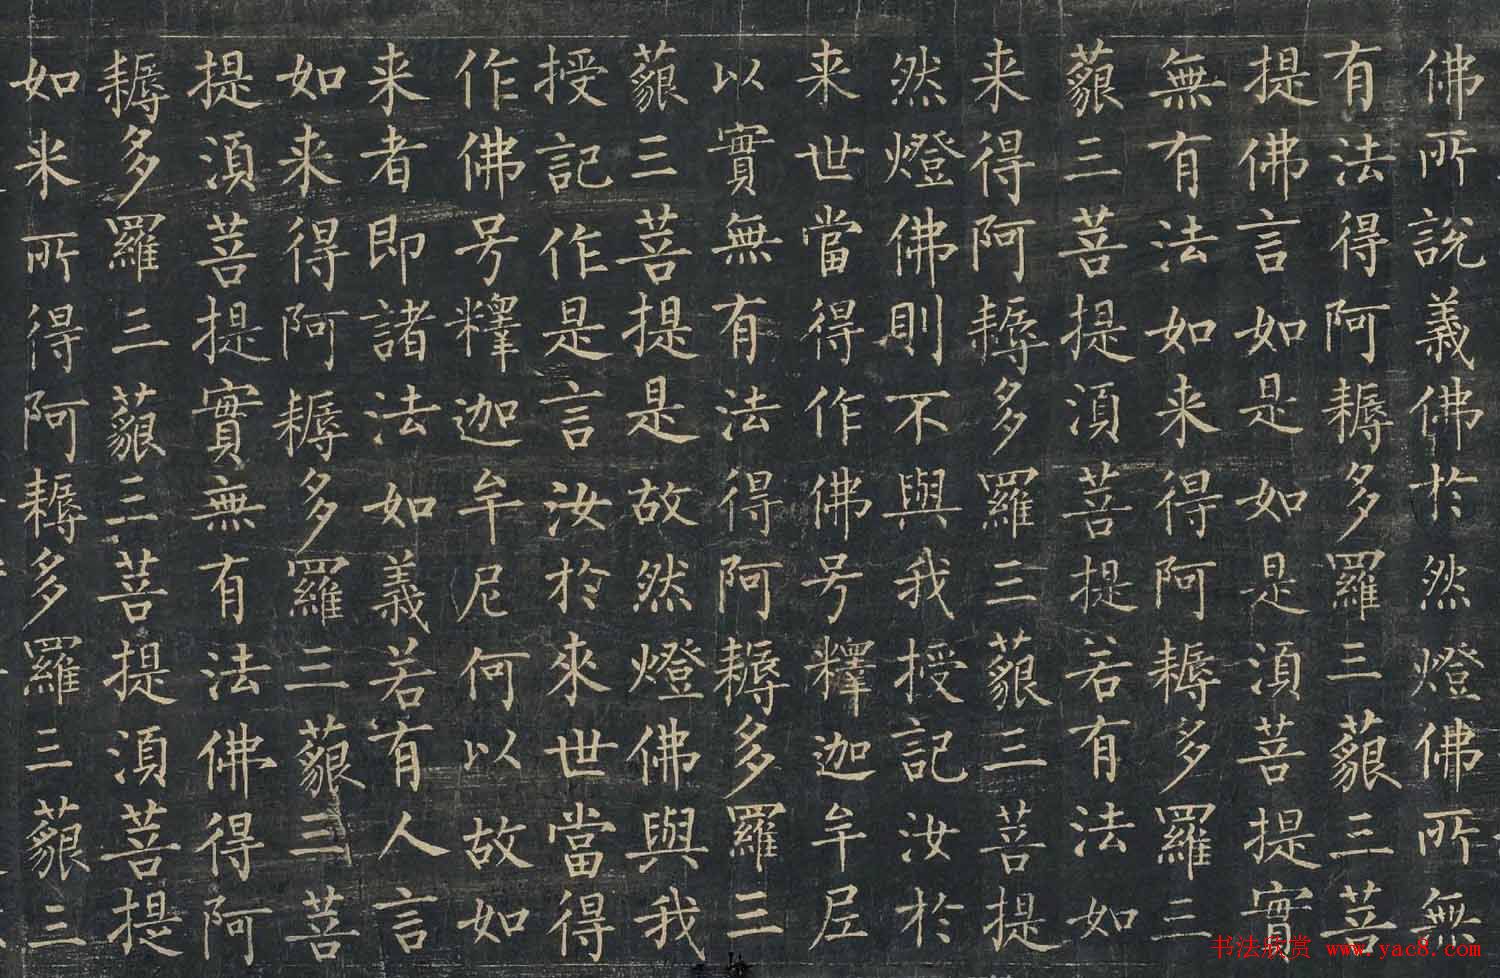 佛所說義佛於然燈佛所無
有法得阿耨多羅三藐三菩
提佛言如是如是須菩提實
無有法如来得阿耨多羅三
藐三菩提須菩提若有法如
来得阿耨多羅三藐三菩提
然燈佛則不與我授記汝於
来世當得作佛号釋迦牟尼
以實無有法得阿耨多羅三
藐三菩提是故然燈佛與我
授記作是言汝於來世當得
作佛号釋迦牟尼何以故如
来者即諸法如義若有人言
如来得阿耨多羅三藐三菩
提須菩提實無有法佛得阿
耨多羅三藐三菩提須菩提
如来所得阿耨多羅三藐三
书法欣赏 www.yac8.com